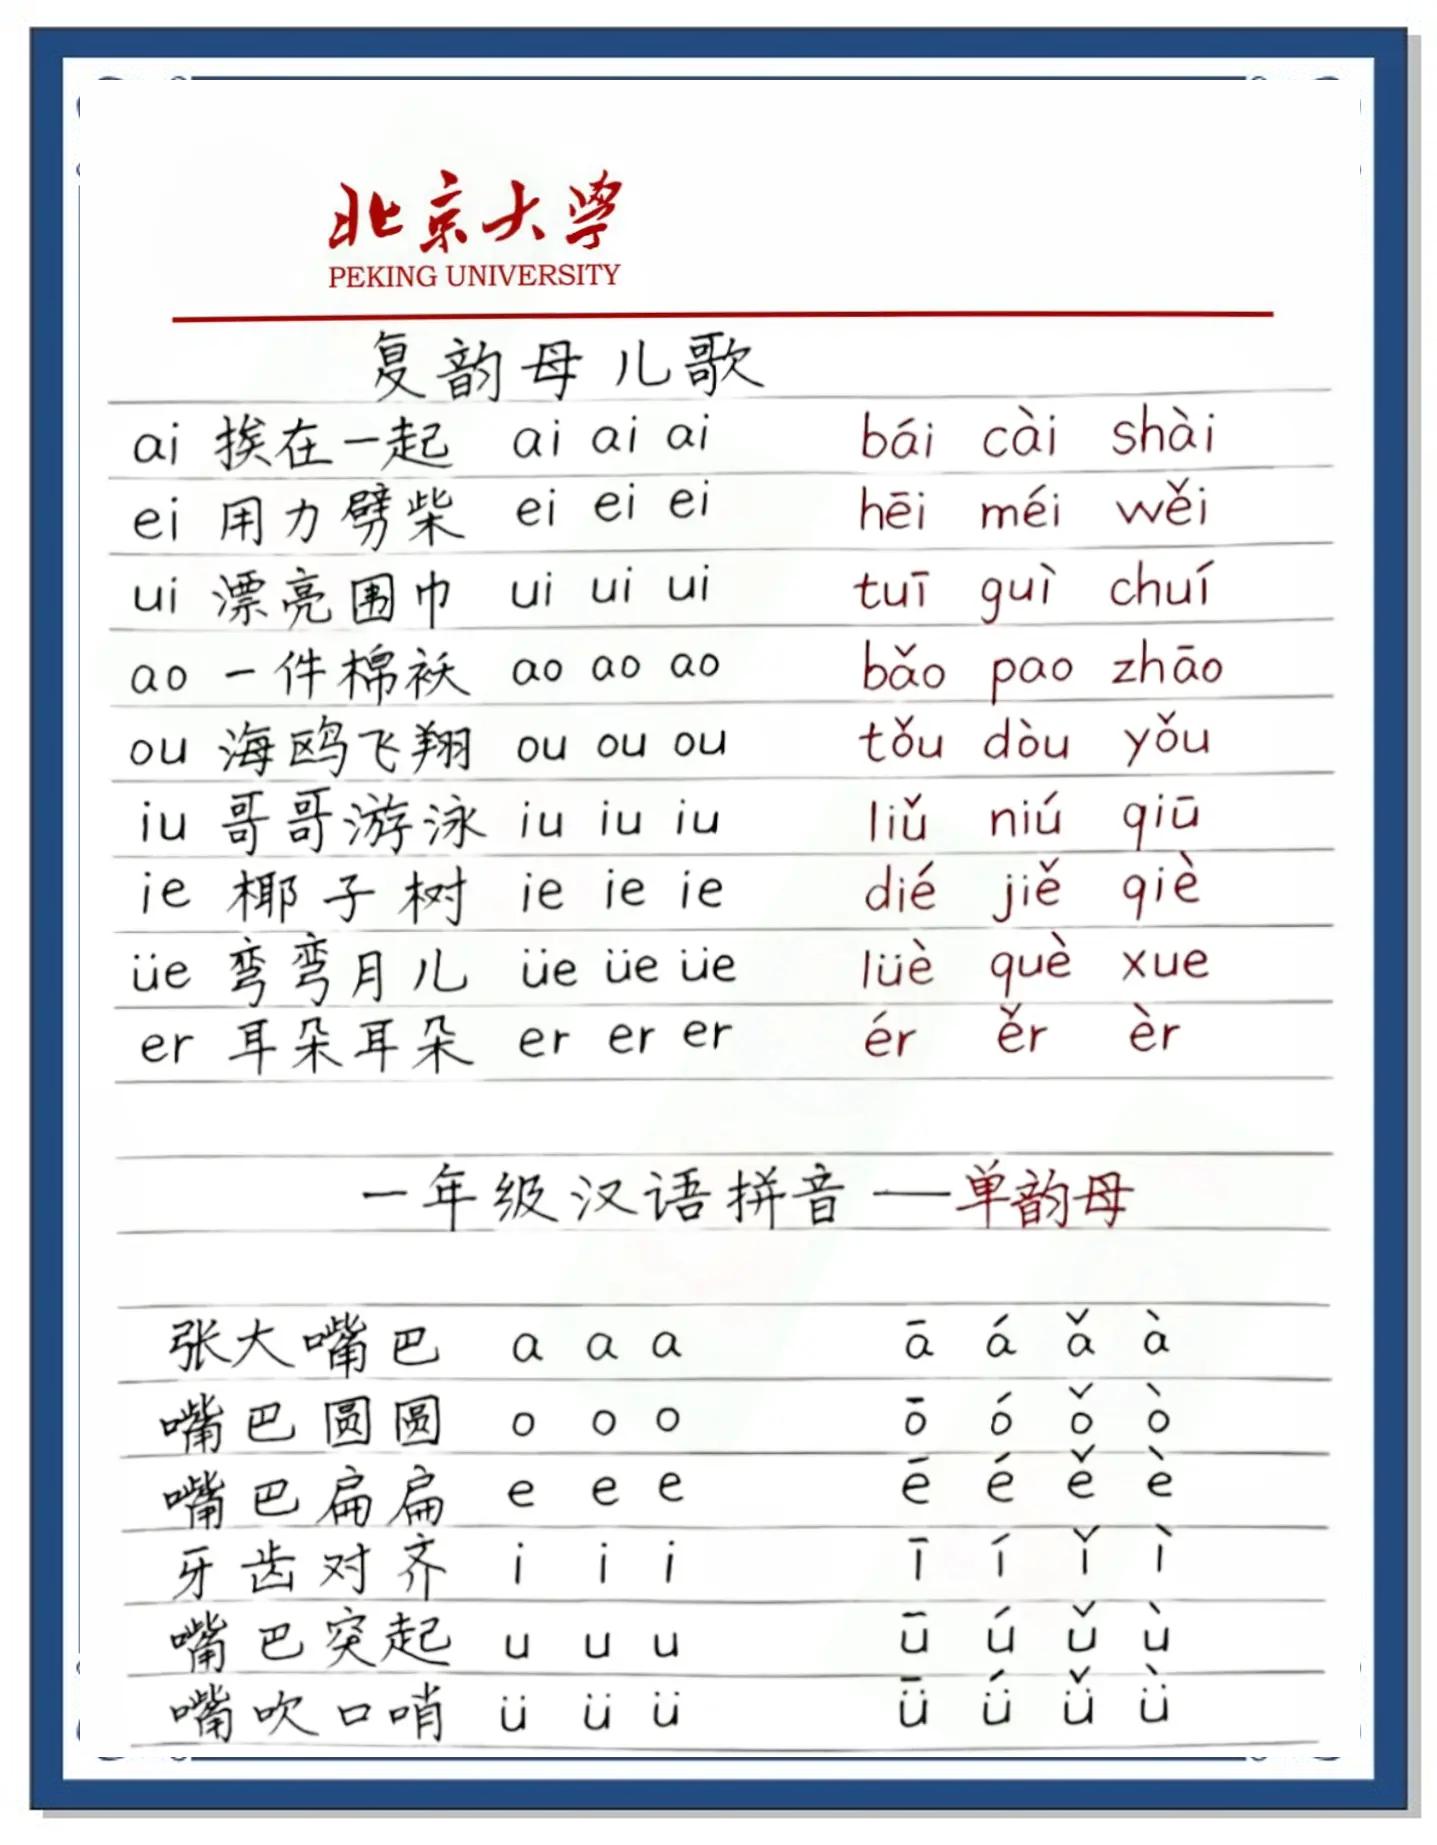 北京大学
PEKING UNIVERSITY
复韵母儿歌
ai 挨在一起 ai ai ai bái cài shài
ei 用力劈柴 ei ei ei hēi méi wěi
ui 漂亮围巾 ui ui ui tuī guì chuí
ao 一件棉袄 ao ao ao bǎo pao zhāo
ou 海鸥飞翔 ou ou ou tǒu dòu yǒu
iu 哥哥游泳 iu iu iu liǔ niú qiū
ie 椰子树 ie ie ie dié jiě qiè
üe 弯弯月儿 üe üe üe lüè què xue
er 耳朵耳朵 er er er ér ěr èr
一年级汉语拼音——单韵母
张大嘴巴 a a a ā á ǎ à
嘴巴圆圆 o o o ō ó ǒ ò
嘴巴扁扁 e e e ē é ě è
牙齿对齐 i i i ī í ǐ ì
嘴巴突起 u u u ū ú ǔ ù
嘴吹口哨 ü ü ü ǖ ǘ ǚ ǜ